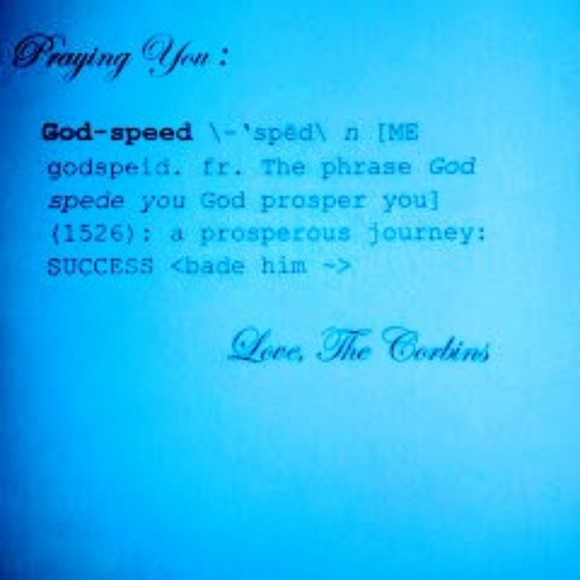 Praying You :
God-speed \-'spēd\ n [ME
godspeid. fr. The phrase God
spede you God prosper you]
(1526): a prosperous journey:
SUCCESS <bade him ~>
Love, The Corbins